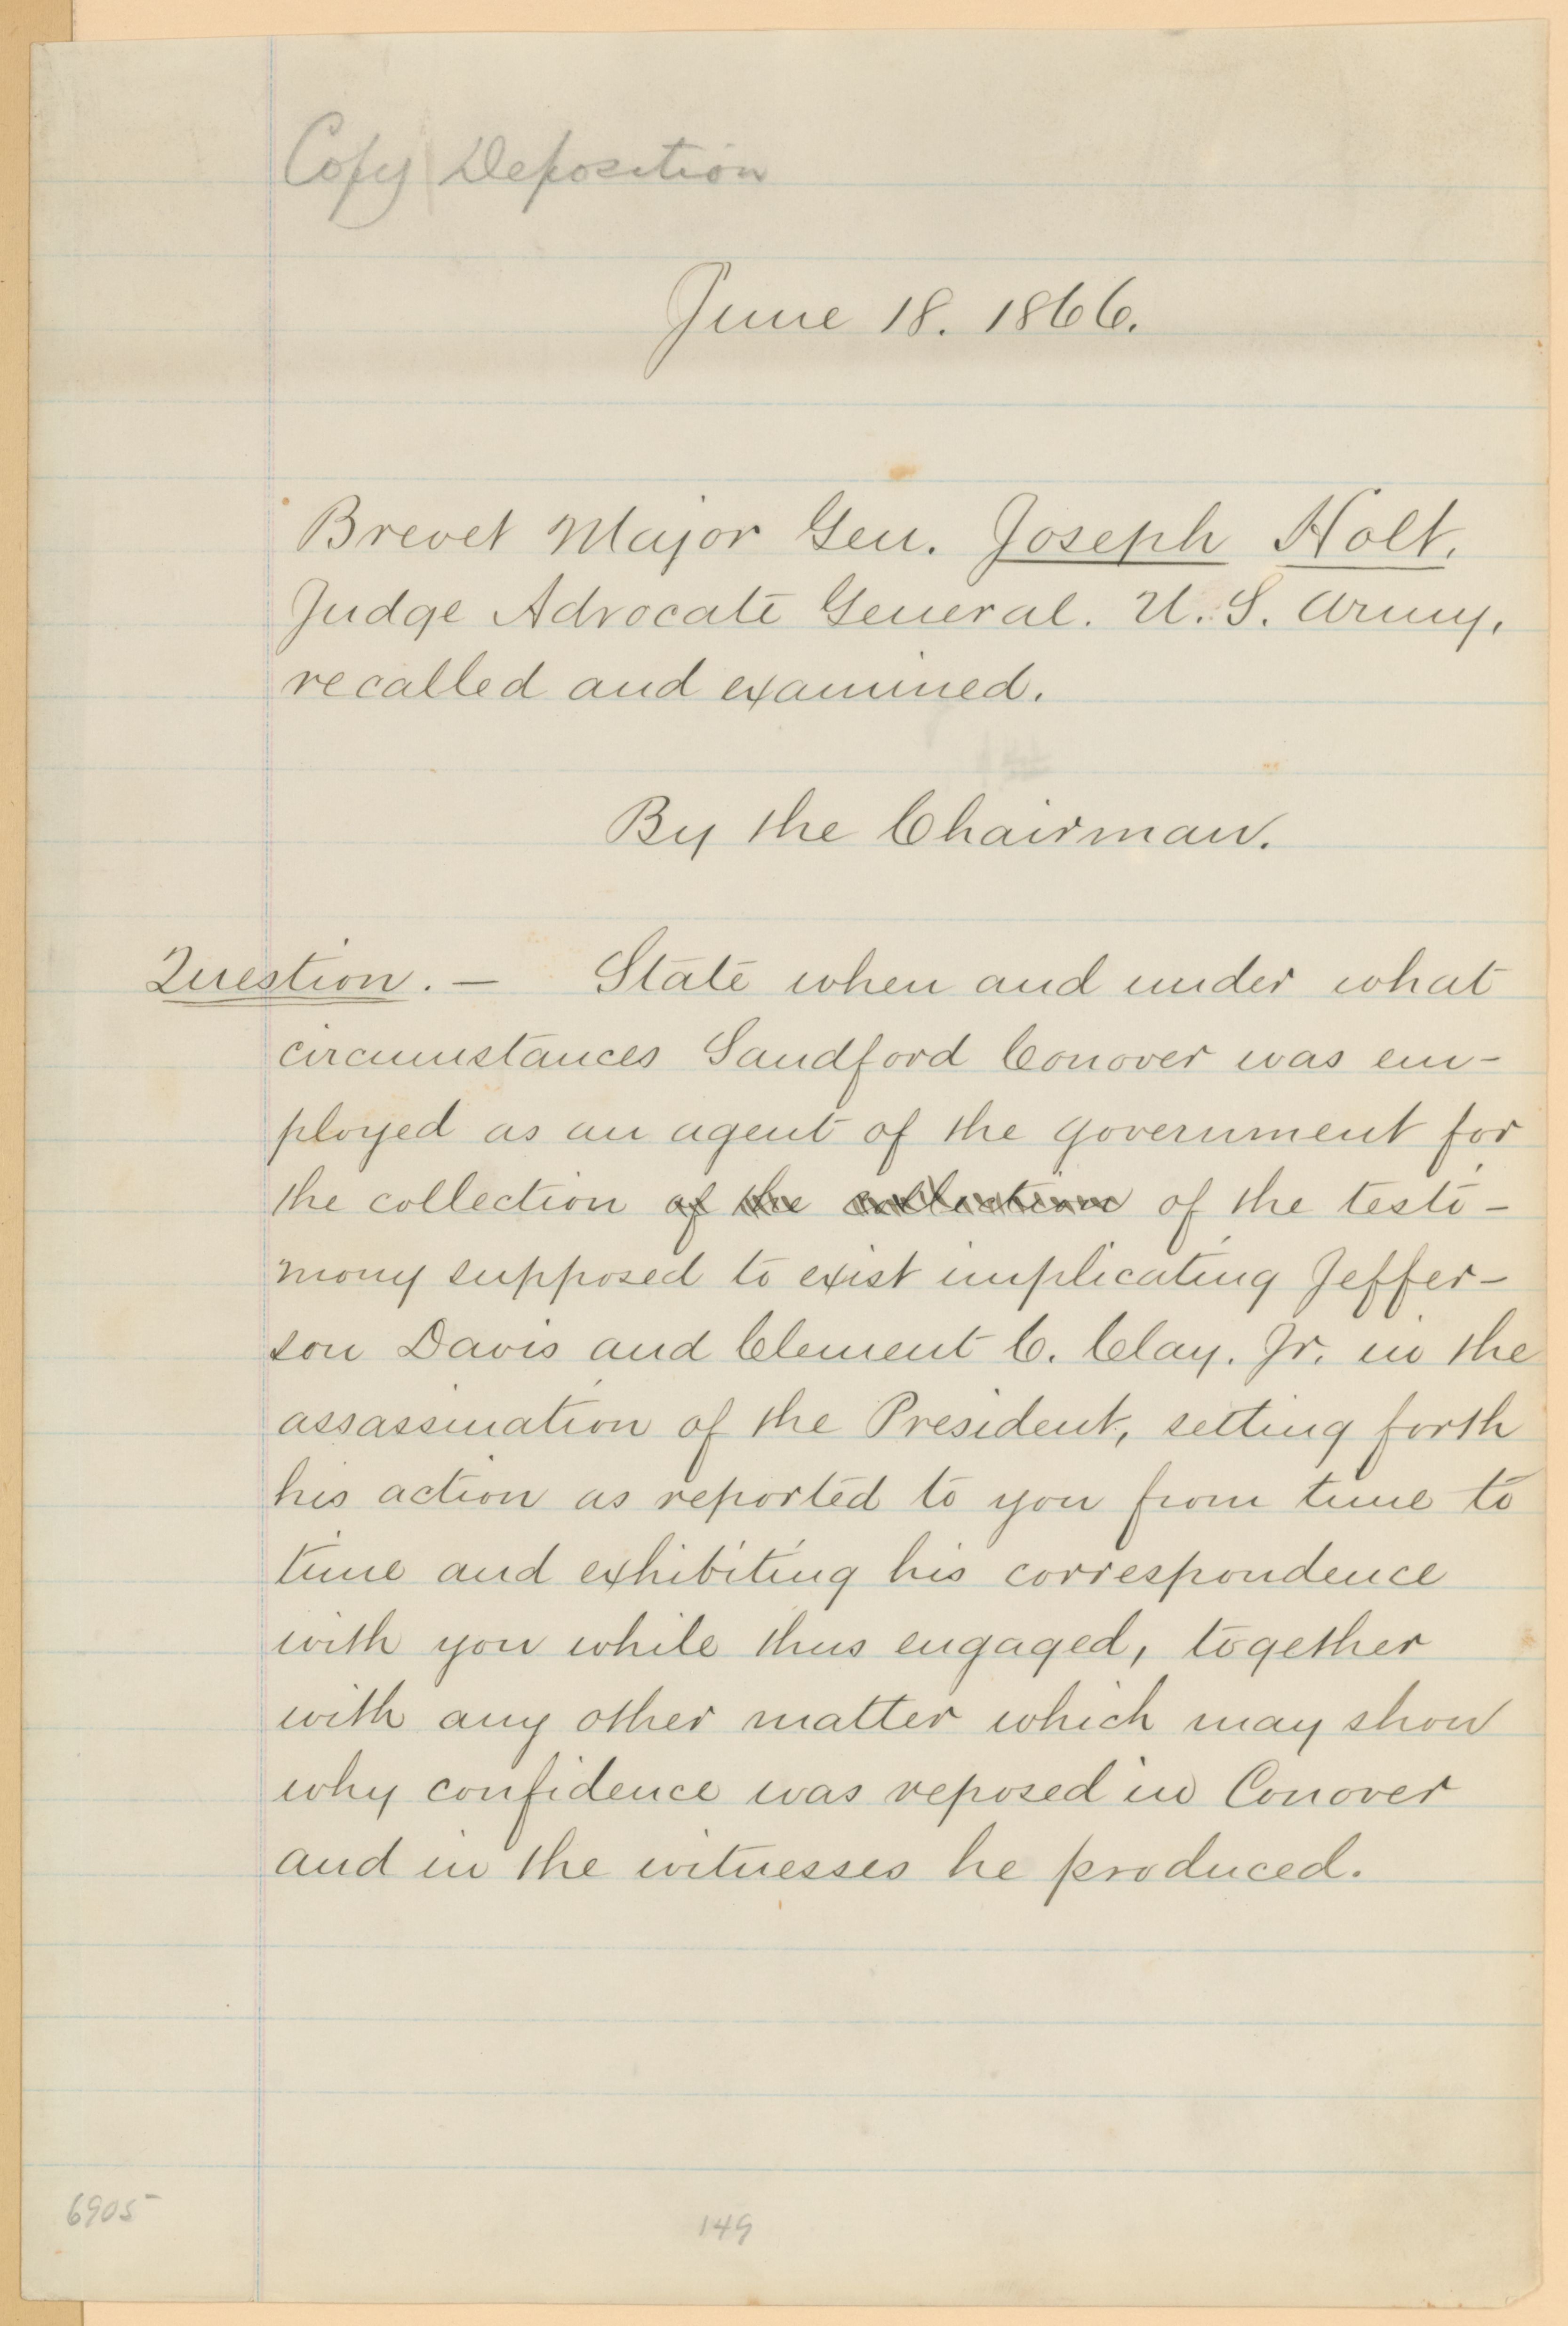 Copy Deposition
June 18. 1866.
Brevet Major Gen. Joseph Holt.
Judge Advocate General. U.S. Army,
recalled and examined.
By the Chairman.
Question. — State when and under what
circumstances Sandford Conover was em-
ployed as an agent of the government for
the collection of the collection of the testi-
mony supposed to exist implicating Jeffer-
son Davis and Clement C. Clay. Jr. in the
assassination of the President, setting forth
his action as reported to you from time to
time and exhibiting his correspondence
with you while thus engaged, together
with any other matter which may show
why confidence was reposed in Conover
and in the witnesses he produced.
6905
149